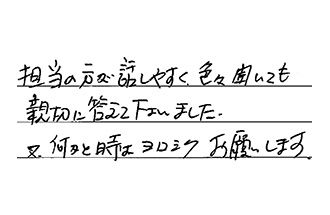 担当の方が話しやすく、色々聞いても
親切に答えて下さいました。
又、何かと時はヨロシク お願いします。